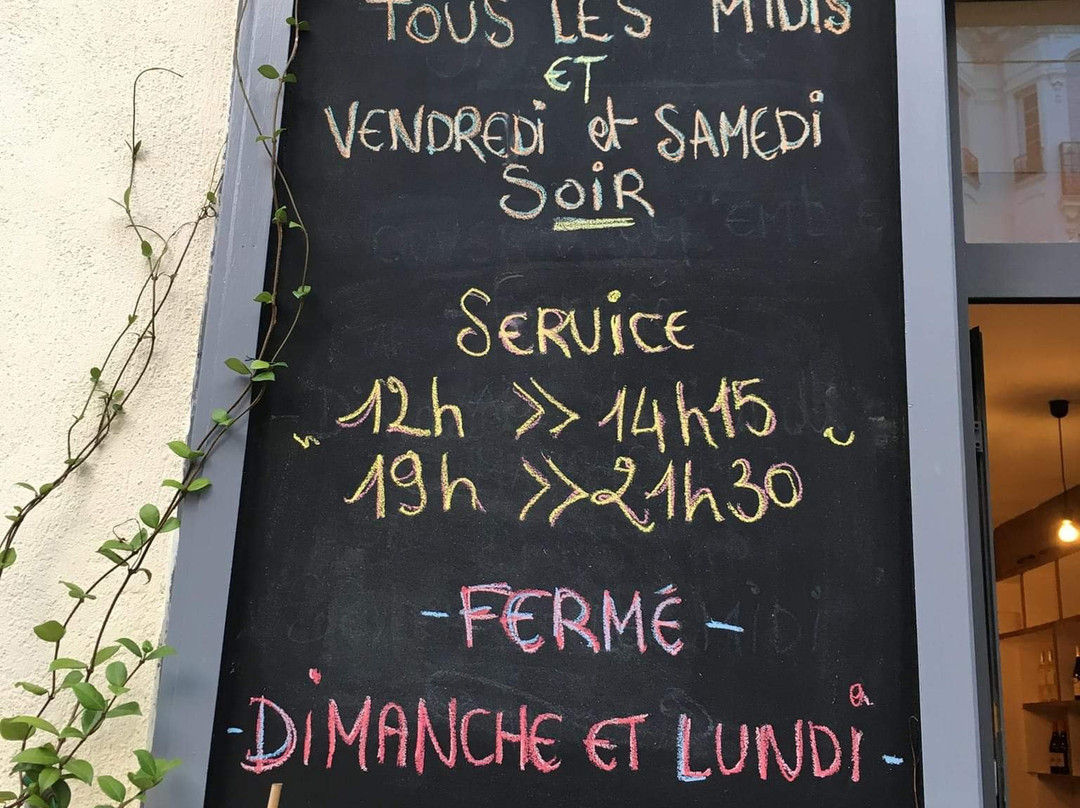 TOUS LES MIDIS
ET
VENDREDI et SAMEDI
SOIR
SERVICE
12h >> 14h15
19h >> 21h30
- FERMÉ -
- DIMANCHE ET LUNDI -